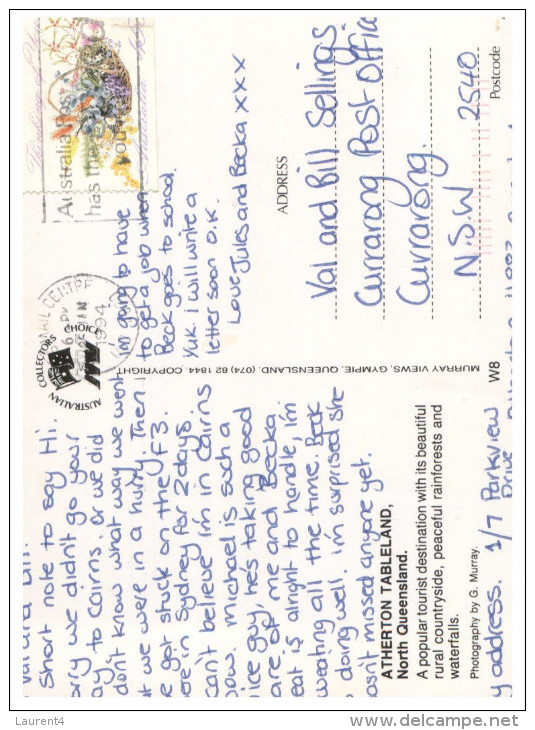 Short note to say Hi.
we didn't go your
to Cairns, or we did
don't know what way we went
we were in a hurry. Then
got stuck on the F3.
in Sydney for 2 days.
can't believe I'm in Cairns
now. Michael is such a
nice guy, he's taking good
of me and Becka.
is alright to handle, I'm
sweating all the time. Beck
doing well. I'm surprised she
hasn't missed anyone yet.
ATHERTON TABLELAND,
North Queensland.
A popular tourist destination with its beautiful
rural countryside, peaceful rainforests and
waterfalls.
Photography by G. Murray.
address. 1/7 Parkview
Drive
AUSTRALIAN COLLECTORS CHOICE
MURRAY VIEWS, GYMPIE, QUEENSLAND. (074) 82 1844. COPYRIGHT
W8
I'm going to have
to get a job when
Beck goes to school.
Yuk. I will write a
letter soon O.K.
Love Jules and Becka xxx
MAIL CENTRE
1994
Australia Post
has the
you
ADDRESS
Val and Bill Sellings
Currarong Post Office
Currarong.
N.S.W 2540
Postcode
Laurent4
www.delcampe.net